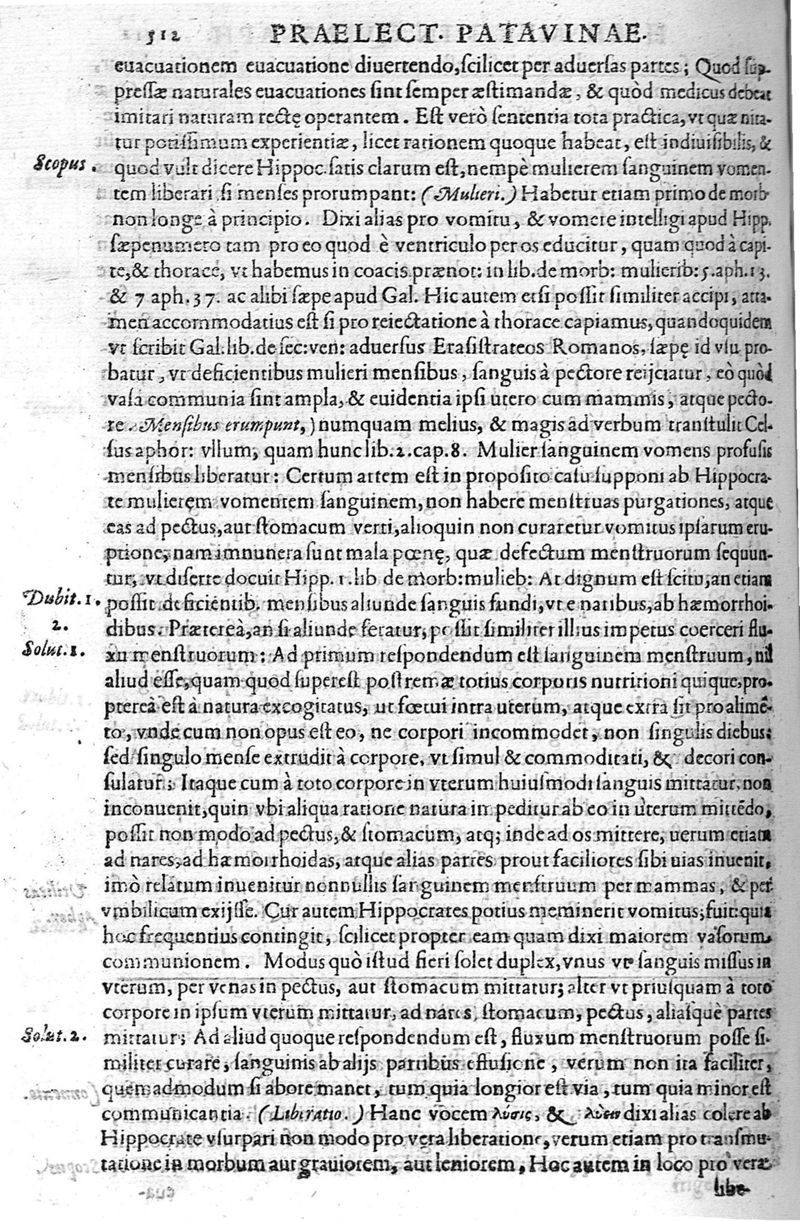 512 PRAELECT. PATAVINAE.
euacuationem euacuatione diuertendo, scilicet per aduersas partes; Quod sup-
pressæ naturales euacuationes sint semper æstimandæ, & quòd medicus debeat
imitari naturam rectę operantem. Est verò sententia tota practica, vt quæ nita-
tur potissimum experientiæ, licet rationem quoque habeat, est indiuisibilis, &
Scopus. quod vult dicere Hippoc. satis clarum est, nempè mulierem sanguinem vomen-
tem liberari si menses prorumpant: (Mulieri.) Habetur etiam primo de morb
non longe à principio. Dixi alias pro vomitu, & vomere intelligi apud Hipp.
sæpenumero tam pro eo quod è ventriculo per os educitur, quam quod à capi-
te, & thorace, vt habemus in coacis prænot: in lib. de morb: mulierib: 5. aph. 13.
& 7 aph. 37. ac alibi sæpe apud Gal. Hic autem etsi possit similiter accipi, atta-
men accommodatius est si pro reiectatione à thorace capiamus, quandoquidem
vt scribit Gal. lib. de sec: ven: aduersus Erasistrateos Romanos, sæpę id vsu pro-
batur, vt deficientibus mulieri mensibus, sanguis à pectore reijciatur, eò quòd
vasa communia sint ampla, & euidentia ipsi utero cum mammis, atque pecto-
re. Mensibus erumpunt,) numquam melius, & magis ad verbum transtulit Cel-
sus aphor: vllum, quam hunc lib. 2. cap. 8. Mulier sanguinem vomens profusis
mensibus liberatur: Certum artem est in proposito casu supponi ab Hippocra-
te mulierem vomentem sanguinem, non habere menstruas purgationes, atque
eas ad pectus, aut stomacum verti, alioquin non curaretur vomitus ipsarum eru-
ptione, nam imnunera sunt mala pœnę, quæ defectum menstruorum sequun-
tur, vt diserte docuit Hipp. 1. lib de morb: mulieb: At dignum est scitu, an etiam
Dubit. 1. possit deficiẽtib. mensibus aliunde sanguis fundi, vt e naribus, ab hæmorrhoi-
2. dibus. Prætereà, an si aliunde feratur, possit similiter illius impetus coerceri flu-
Solut. 1. xu menstruorum: Ad primum respondendum est sanguinem menstruum, nil
aliud esse, quam quod superest postremæ totius corporis nutritioni quique, pro-
ptereà est à natura excogitatus, ut fœtui intra uterum, atque extra sit pro alimẽ-
to, vnde cum non opus est eo, ne corpori incommodet, non singulis diebus;
sed singulo mense extrudit à corpore, vt simul & commoditati, & decori con-
sulatur; Itaque cum à toto corpore in vterum huiusmodi sanguis mittatur, non
inconuenit, quin vbi aliqua ratione natura impeditur ab eo in uterum mittẽdo,
possit non modo ad pectus, & stomacum, atq; inde ad os mittere, uerum etiam
ad nares, ad hæmorrhoidas, atque alias partes prout faciliores sibi uias inuenit,
imò relatum inuenitur nonnullis sanguinem menstruum per mammas, & per
vmbilicum exijsse. Cur autem Hippocrates potius meminerit vomitus; fuit: quia
hoc frequentius contingit, scilicet propter eam quam dixi maiorem vasorum
communionem. Modus quò istud fieri solet duplex, vnus vt sanguis missus in
vterum, per venas in pectus, aut stomacum mittatur; alter vt priusquam à toto
corpore in ipsum vterum mittatur, ad nares, stomacum, pectus, aliasquè partes
Solut. 2. mittatur; Ad aliud quoque respondendum est, fluxum menstruorum posse si-
militer curare, sanguinis ab alijs partibus effusione, verum non ita faciliter,
quemadmodum si ab ore manet, tum quia longior est via, tum quia minor est
communicantia. (Liberatio.) Hanc vocem λύσις, & λύειν dixi alias colere ab
Hippocrate vsurpari non modo pro vera liberatione, verum etiam pro transmu-
tatione in morbum aut grauiorem, aut leniorem, Hoc autem in loco pro veræ
libe-